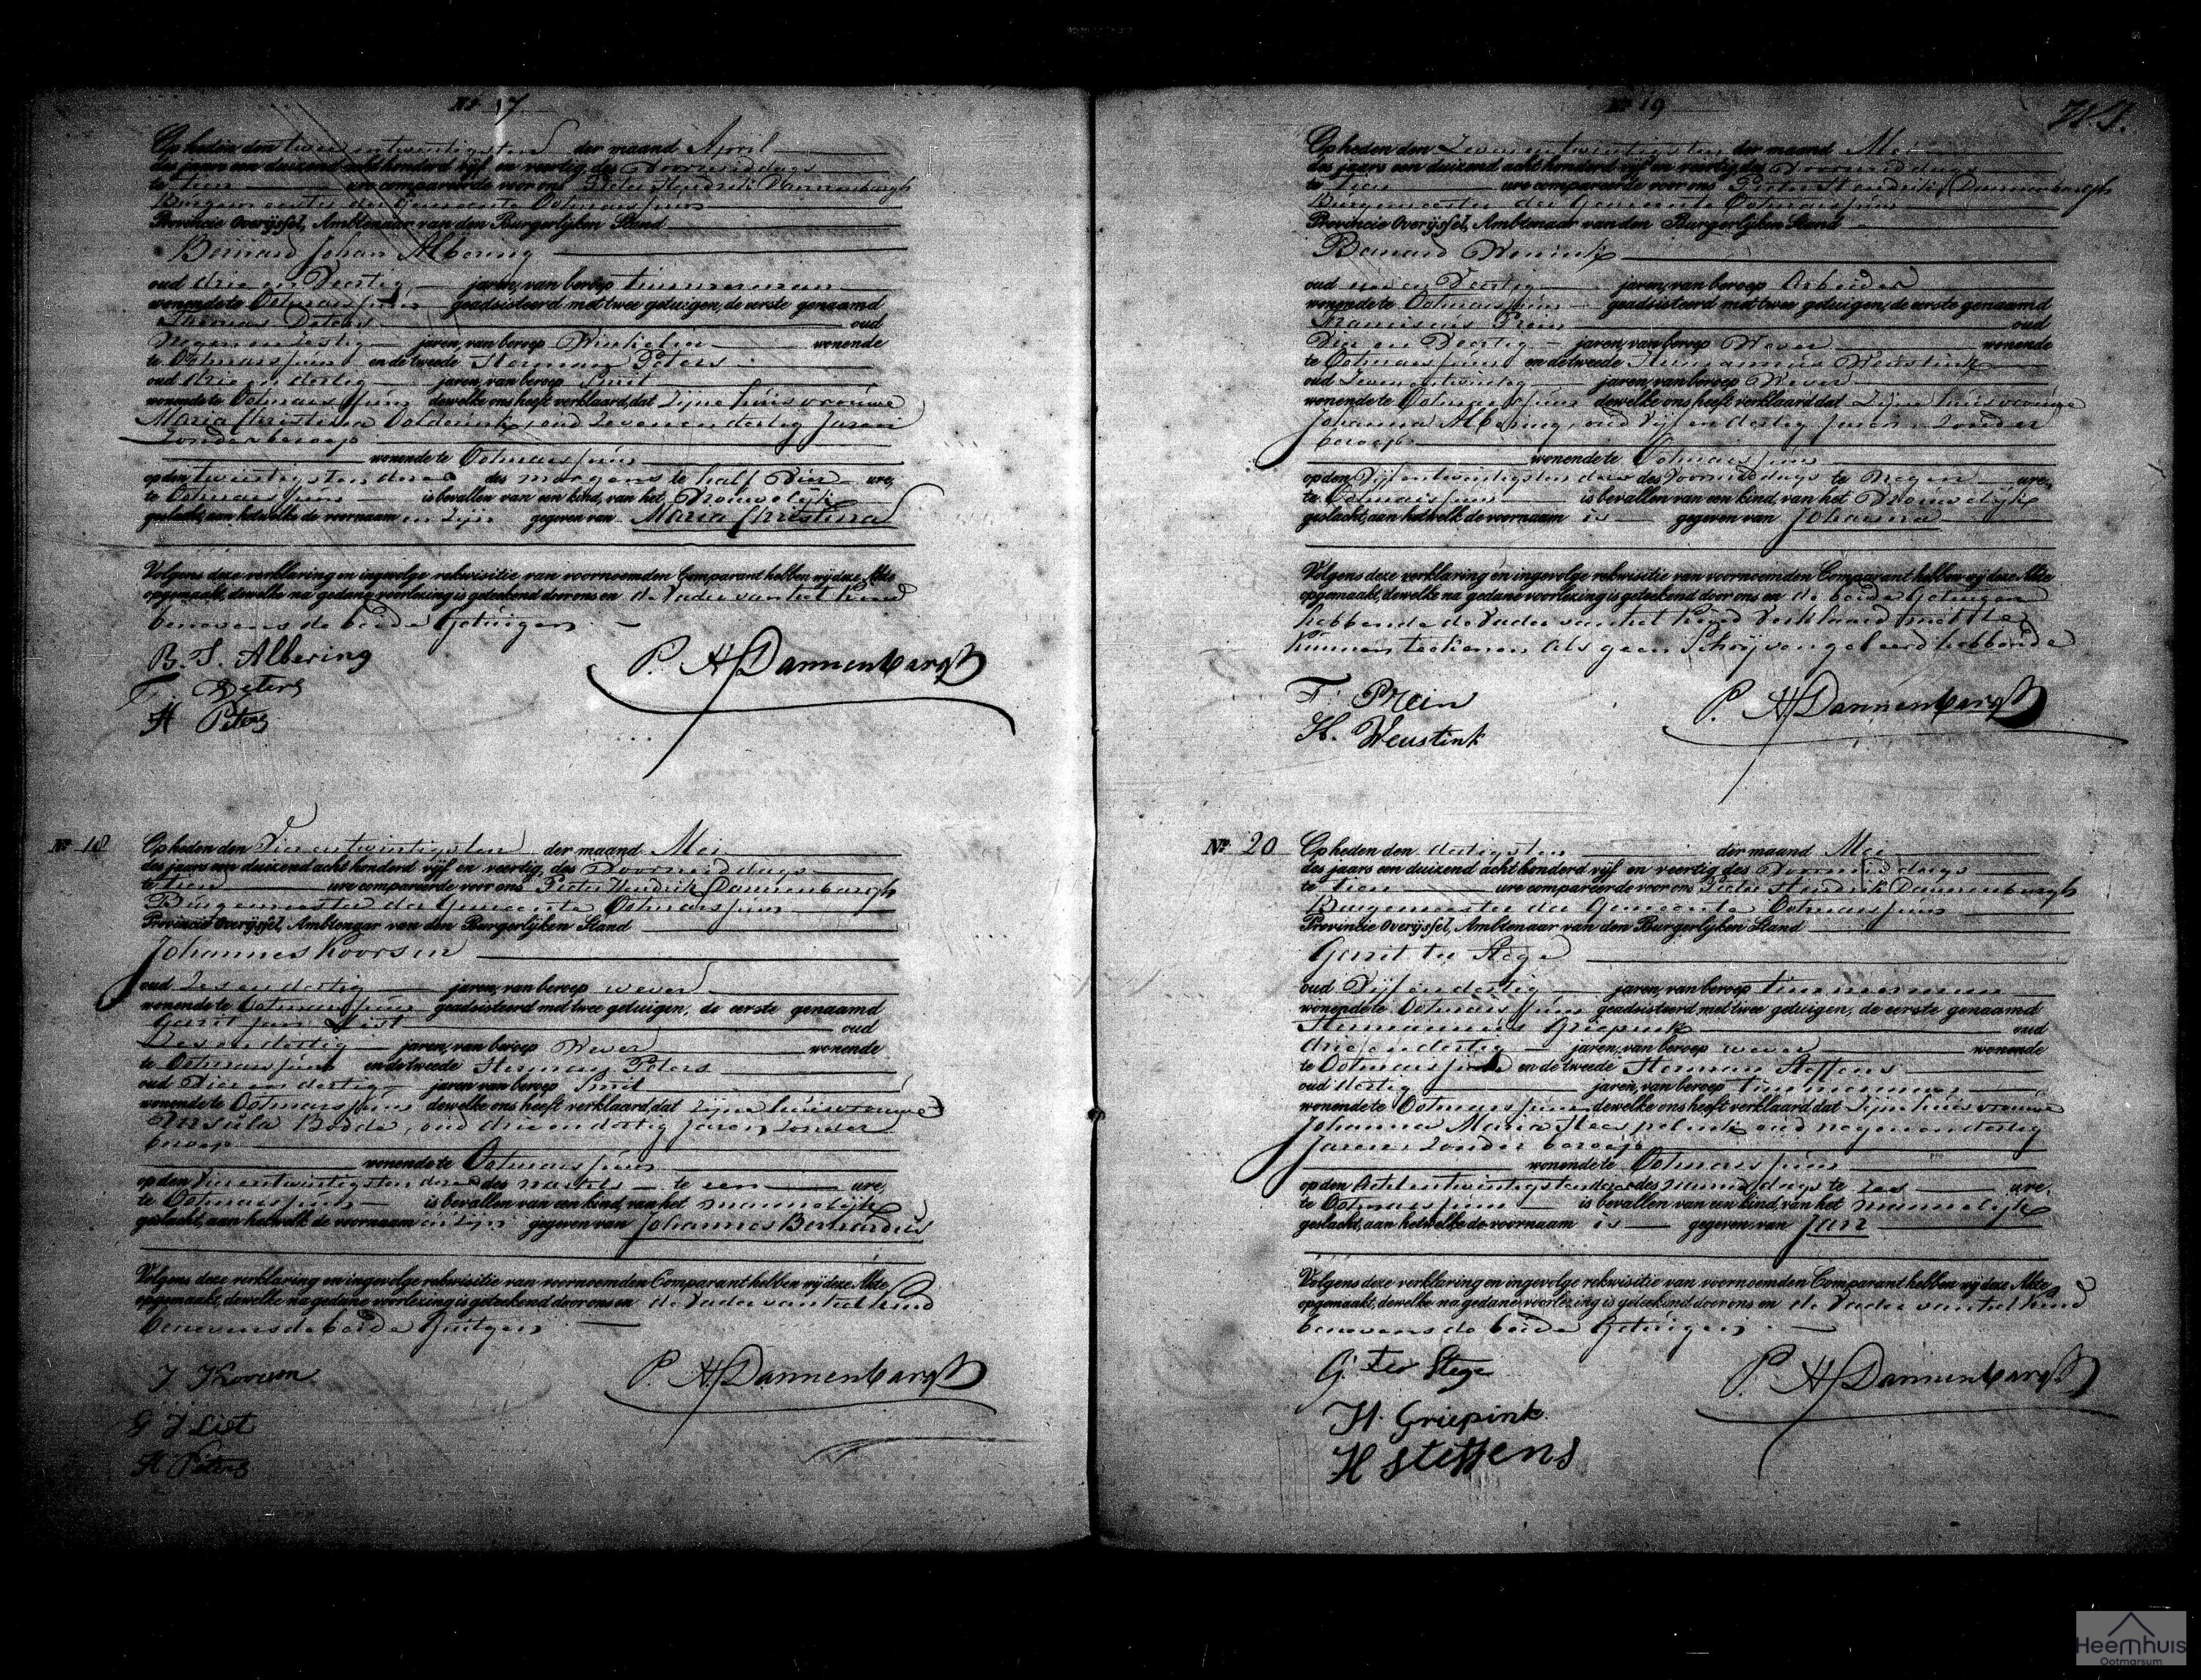 No 17
Op heden den twee en twintigsten der maand April
des jaars een duizend acht honderd vijf en veertig, des Voormiddags
te tien ure compareerde voor ons Pieter Hendrik Dannenbargh
Burgemeester der Gemeente Ootmarssum
Provincie Overijssel, Ambtenaar van den Burgerlijken Stand
Bernard Johan Albering
oud drie en Veertig jaren, van beroep timmerman
wonende te Ootmarssum geadsisteerd met twee getuigen, de eerste genaamd
Thomas Deters oud
Negen en zestig jaren, van beroep Winkelier wonende
te Ootmarssum en de tweede Herman Peters
oud drie en dertig jaren, van beroep Smit
wonende te Ootmarssum dewelke ons heeft verklaard, dat Zijne huisvrouwe
Maria Christina oud Zeven en dertig Jaren
Zonder beroep
wonende te Ootmarssum
op den twintigsten dezer des morgens te half Vier ure,
te Ootmarssum is bevallen van een kind, van het Vrouwelijk
geslacht, aan hetwelke de voornaam en Zijn gegeven van Maria Christina
Volgens deze verklaring en ingevolge rekwisitie van voornoemden Comparant hebben wij deze Akte
opgemaakt, dewelke na gedane voorlezing is geteekend door ons en de Vader van het Kind
benevens de beide Getuigen
B. J. Albering
P. H. Dannenbargh
T. Deters
H Peters
No 18
Op heden den Vier en twintigsten der maand Mei
des jaars een duizend acht honderd vijf en veertig, des Voormiddags
te tien ure compareerde voor ons Pieter Hendrik Dannenbargh
Burgemeester der Gemeente Ootmarssum
Provincie Overijssel, Ambtenaar van den Burgerlijken Stand
Johannes Koorsen
oud Zes en dertig jaren, van beroep wever
wonende te Ootmarssum geadsisteerd met twee getuigen, de eerste genaamd
Gerrit Jan List oud
Zes en dertig jaren, van beroep Wever wonende
te Ootmarssum en de tweede Herman Peters
oud Vier en dertig jaren van beroep Smit
wonende te Ootmarssum dewelke ons heeft verklaard, dat Zijne huisvrouwe
Ursula Bodde, oud drie en dertig Jaren, Zonder
beroep
wonende te Ootmarssum
op den Vier en twintigsten dezer des nachts te een ure,
te Ootmarssum is bevallen van een kind, van het mannelijk
geslacht, aan hetwelk de voornaam en Zijn gegeven van Johannes Bernardus
Volgens deze verklaring en ingevolge rekwisitie van voornoemden Comparant hebben wij deze Akte
opgemaakt, dewelke na gedane voorlezing is geteekend door ons en de Vader van het Kind
benevens de beide Getuigen
J Koorsen
P. H. Dannenbargh
G J List
H Peters
No 19
Op heden den Zeven en twintigsten der maand Mei
des jaars een duizend acht honderd vijf en veertig, des Voormiddags
te tien ure compareerde voor ons Pieter Hendrik Dannenbargh
Burgemeester der Gemeente Ootmarssum
Provincie Overijssel, Ambtenaar van den Burgerlijken Stand
Bernard
oud een en Veertig jaren, van beroep Arbeider
wonende te Ootmarssum geadsisteerd met twee getuigen, de eerste genaamd
Franciscus Prein oud
Vier en Veertig jaren, van beroep Wever wonende
te Ootmarssum en de tweede Hermannus Weustink
oud Zeven en twintig jaren, van beroep Wever
wonende te Ootmarssum dewelke ons heeft verklaard dat Zijne huisvrouwe
Johanna Albering, oud Vijf en dertig Jaren, Zonder
beroep
wonende te Ootmarssum
op den Vijf en twintigsten dezer des Voormiddags te Negen ure,
te Ootmarssum is bevallen van een kind, van het Vrouwelijk
geslacht, aan hetwelk de voornaam is gegeven van Johanna
Volgens deze verklaring en ingevolge rekwisitie van voornoemden Comparant hebben wij deze Akte
opgemaakt, dewelke na gedane voorlezing is geteekend door ons en de beide Getuigen
hebbende de Vader van het Kind Verklaard niet te
Kunnen teekenen als geen Schrijven geleerd hebbende
F. Prein
P. H. Dannenbargh
H. Weustink
No 20
Op heden den dertigsten der maand Mei
des jaars een duizend acht honderd vijf en veertig des Voormiddags
te tien ure compareerde voor ons Pieter Hendrik Dannenbargh
Burgemeester der Gemeente Ootmarssum
Provincie Overijssel, Ambtenaar van den Burgerlijken Stand
Gerrit ter Stege
oud Vijf en dertig jaren, van beroep timmerman
wonende te Ootmarssum geadsisteerd met twee getuigen, de eerste genaamd
Hermannus Griepink oud
drie en dertig jaren, van beroep wever wonende
te Ootmarssum en de tweede Herman Steffens
oud dertig jaren, van beroep timmerman
wonende te Ootmarssum dewelke ons heeft verklaard dat Zijne huisvrouwe
Johanna Maria oud negen en dertig
Jaren, Zonder beroep
wonende te Ootmarssum
op den Acht en twintigsten dezer des namiddags te Zes ure,
te Ootmarssum is bevallen van een kind, van het mannelijk
geslacht, aan hetwelke de voornaam is gegeven van Jan
Volgens deze verklaring en ingevolge rekwisitie van voornoemden Comparant hebben wij deze Akte
opgemaakt, dewelke na gedane voorlezing is geteekend door ons en de Vader van het Kind
benevens de beide Getuigen
G. ter Stege
P. H. Dannenbargh
H. Griepink
H Steffens
Heemhuis
Ootmarsum